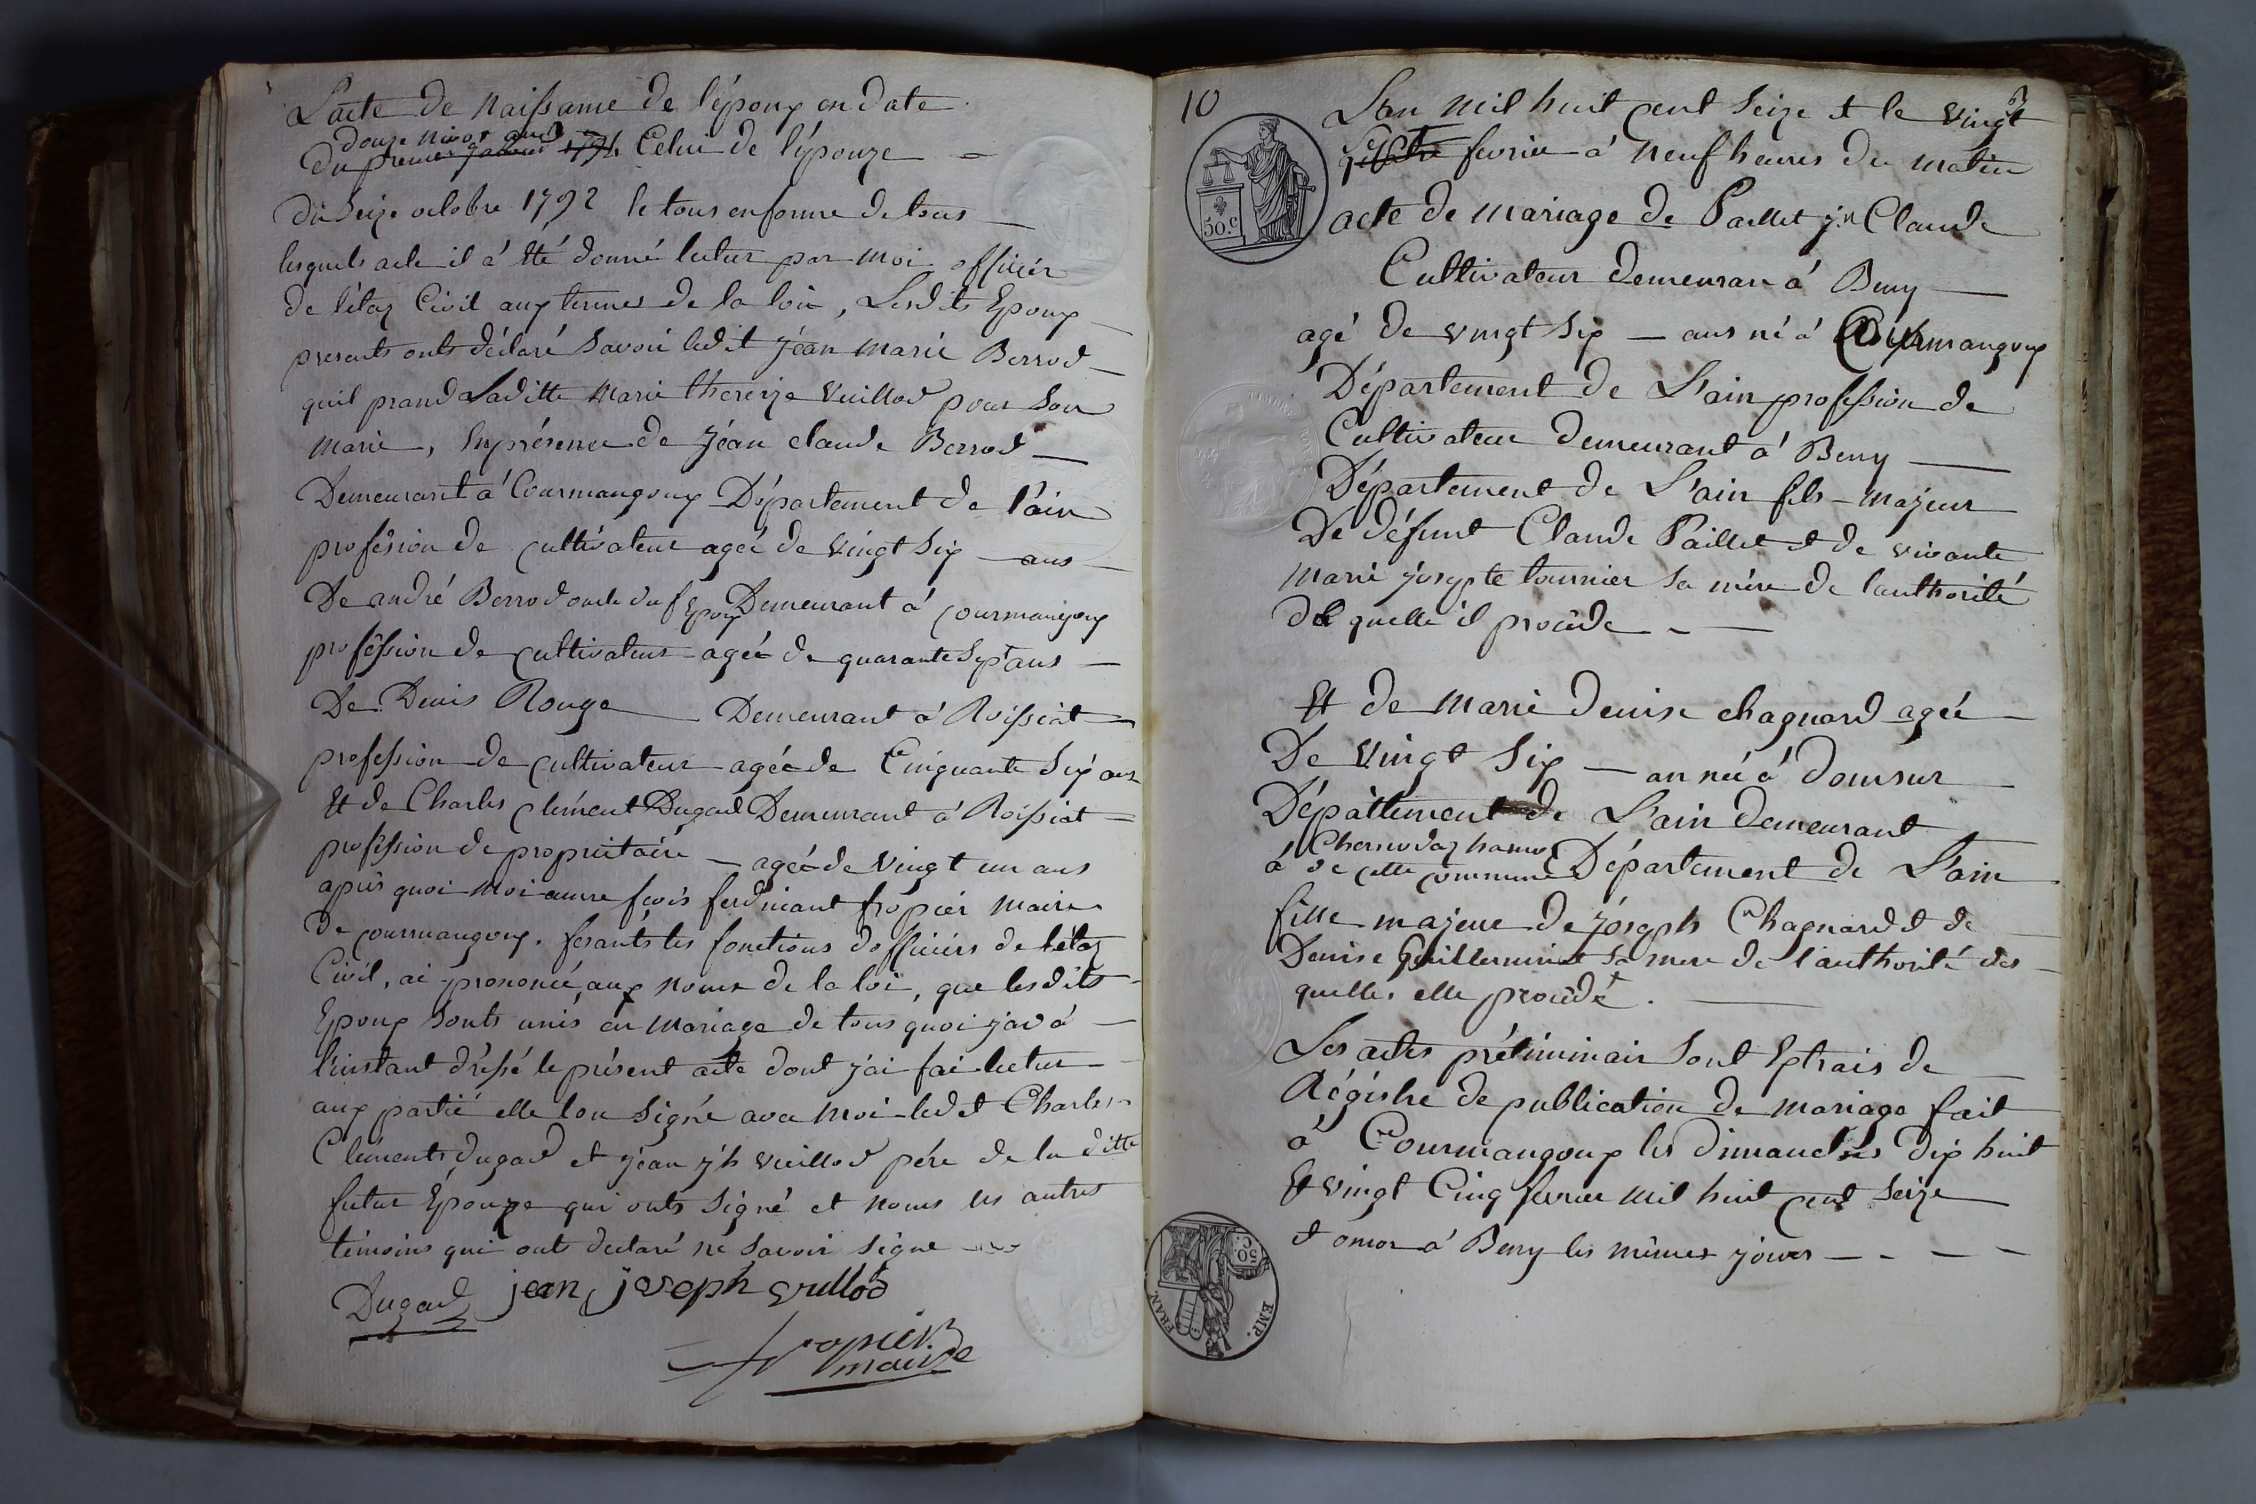 L'acte de naissance de l'époux en date
douze nivos an 3
du premier janvier 1791. Celui de l'épouze =
du Seize octobre 1792 le tous en forme de tous
lesquels acte il á été donné lectur par moi officier
de l'étaz Civil aux termes de la loix, Lesdits Epoux
presents onts déclaré Savoir ledit jéan marie Berrod
quil prand Laditte Marie thereze Vuillod pour Son
marie, En présence de jéan claude Berrod
Demeurant á Courmangoux Département de l'ain
profession de cultivateur ageé de vingt Six ans
De andré Berrod oncle du f Epoux Demeurant á courmangoux
profession de cultivateur ageé de quarante Sept ans
De Denis Rouge Demeurant á Roissiat
profession de cultivateur ageé de Cinquante Six ans
Et de Charles clément Dugad Demeurant á Roissiat =
profession de propriétaire ageé de vingt un ans
apris quoi moi fçois ferdinant fropier maire
de courmangoux. fesants les fonctions dofficiers de l'étaz
Civil, ai prononcé, aux noms de la loi, que lesdits
Epoux Sonts unis en mariage de tous quoi j'ai á
l'instant dressé le présent acte dont j'ai fai lectur
aux partié elle lon Signé avec moi ledit Charles
Cléments Dugad et jéan j'h vuillod pére de la ditte
futur Epouze qui onts Signé et noms les autres
témoins qui onts declaré ne Savoir Signe
Dugad jean joseph vullod
fropier
maire
10
L'an mil huit cent Seize et le vingt
Sept fevrier á neuf heures du matin
acte de mariage de Paillet j.n Claude
Cultivateur demeuran á Beny
agé de vingt Six ans né á Courmangoux
Département de L'ain profession de
Cultivateur demeurant á Beny
Département de L'ain fils majeur
De défunt Claude Paillet et de vivante
marie josepte tournier Sa mére de l'authorité
de quelle il procéde
Et de marie denise chagnard ageé
De vingt Six an neé á domsur
Département de L'ain demeurant
á de cette commune Département de L'ain
fille majeure de joseph Chagnard et de
Denise Guilleminot Sa mere de l'authorité des
quelles elle procédé.
Les actes préliminair Sont Extrais de
Régistre de publication de mariage fait
á Courmangoux les dimanches dix huit
Et vingt Cinq fevrier mil huit cent Seize
et oncor á Beny les mêmes jours
50.C
50
C.
EMP.
FRAN.